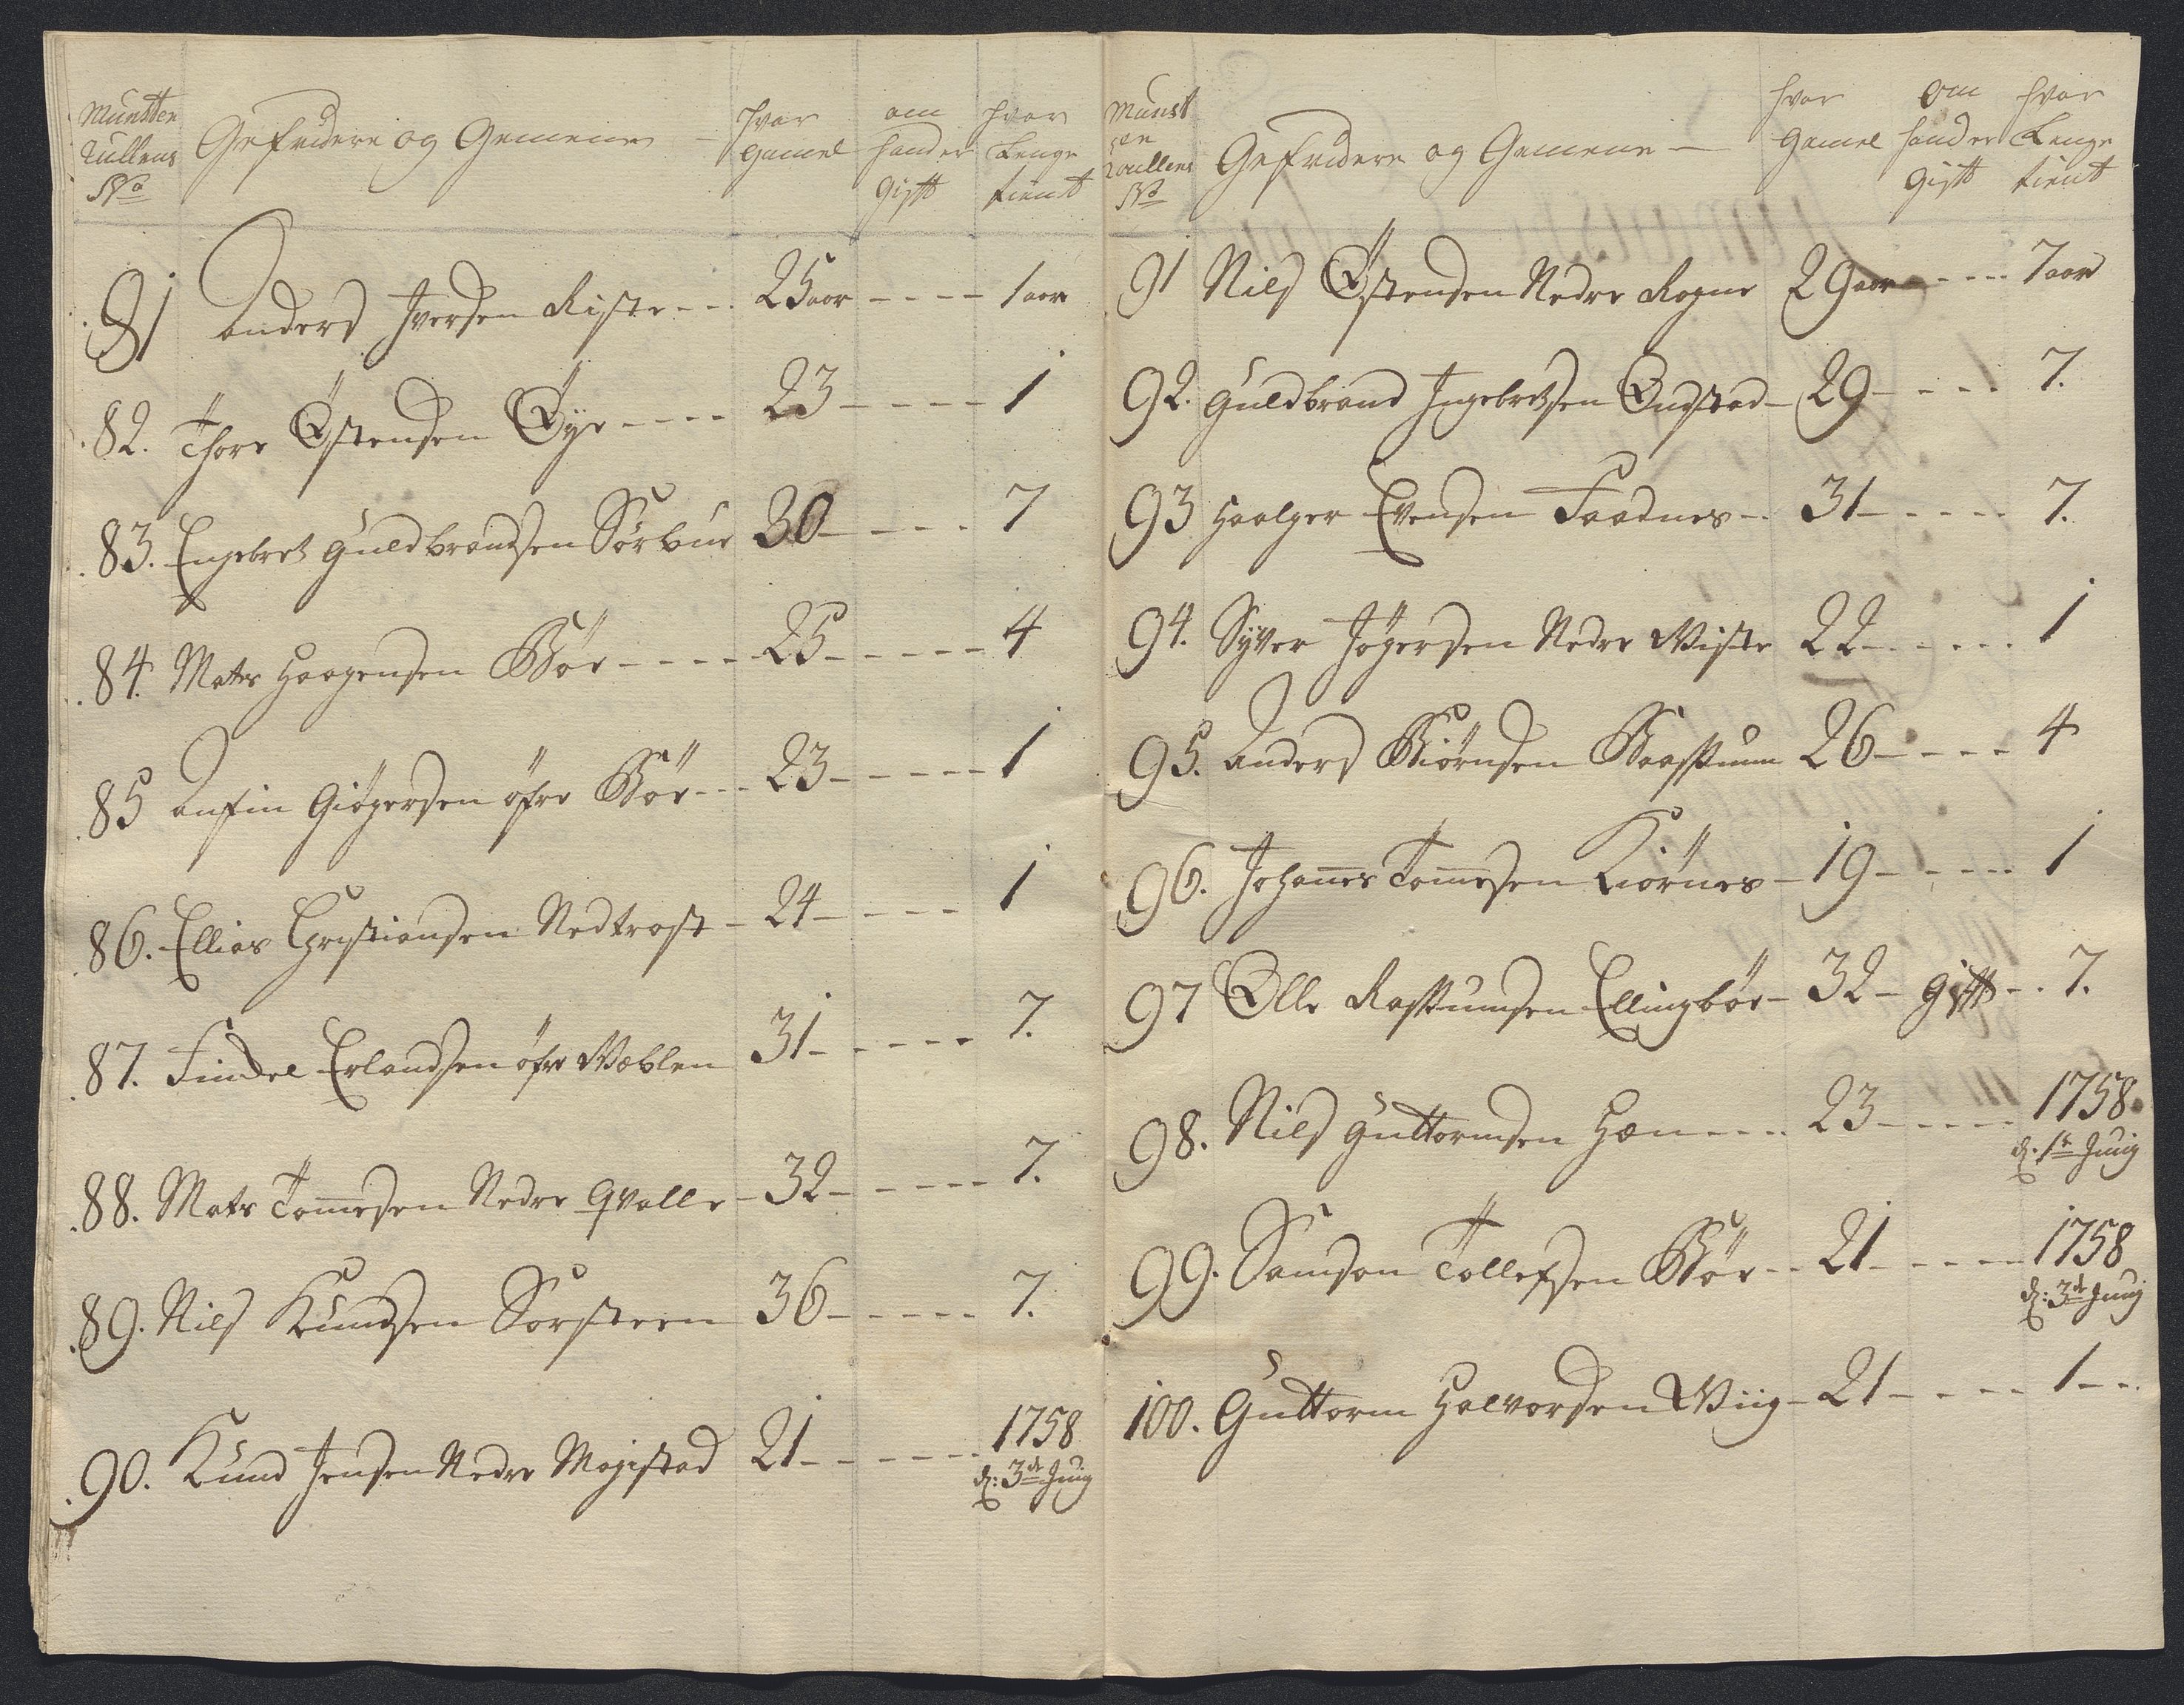 Munster Rullens No | Gefridere og Gemeene | hvor gamel | om hand er gift | hvor Lenge tient
81 Anders Iversen Riste --- 25 aar ---- 1 aar
82. Thore Østensen Øye ---- 23 ---- 1
83. Engebret Guldbrandsen Sørbue 30 ---- 7
84. Mats Haagensen Bøe ---- 25 ---- 4
85 Anfin Giøgersen øfre Bøe --- 23 ---- 1
86. Ellias Christiansen Nedtrost - 24 ---- 1
87. Findel Erlandsen øfre Wæblen 31 ---- 7.
88. Mats Tomesen Nedre Qvalle - 32 ---- 7.
89. Nils Knudsen Sørsteen 36 ---- 7.
90. Knud Jensen Nedre Magistad 21 ---- 1758 d: 3de Junij
Munster Roullens No | Gefridere og Gemeene | hvor gamel | om hand er gift | hvor Lenge tient
91 Nils Østensen Nedre Rogne 29 aar ---- 7 aar
92. Guldbrand Ingebretsen Ønstad - 29 ---- 7.
93 Haalger Evensen Faadnes -- 31 ---- 7.
94. Syver Jøgersen Nedre Wiste 22 ---- 1
95. Anders Biørnsen Baaskuum 26 ---- 4
96. Johanes Tomesen Kiørnes - 19 ---- 1
97 Olle Raskumsen Ellingbøe - 32 - gift -- 7.
98. Nils Guttormsen Hæn ---- 23 ---- 1758 d. 1te Junij
99. Samson Tollefsen Bøe -- 21 ---- 1758 d: 3de Junij
100. Guttorm Halvorsen Wiig - 21 ---- 1 --